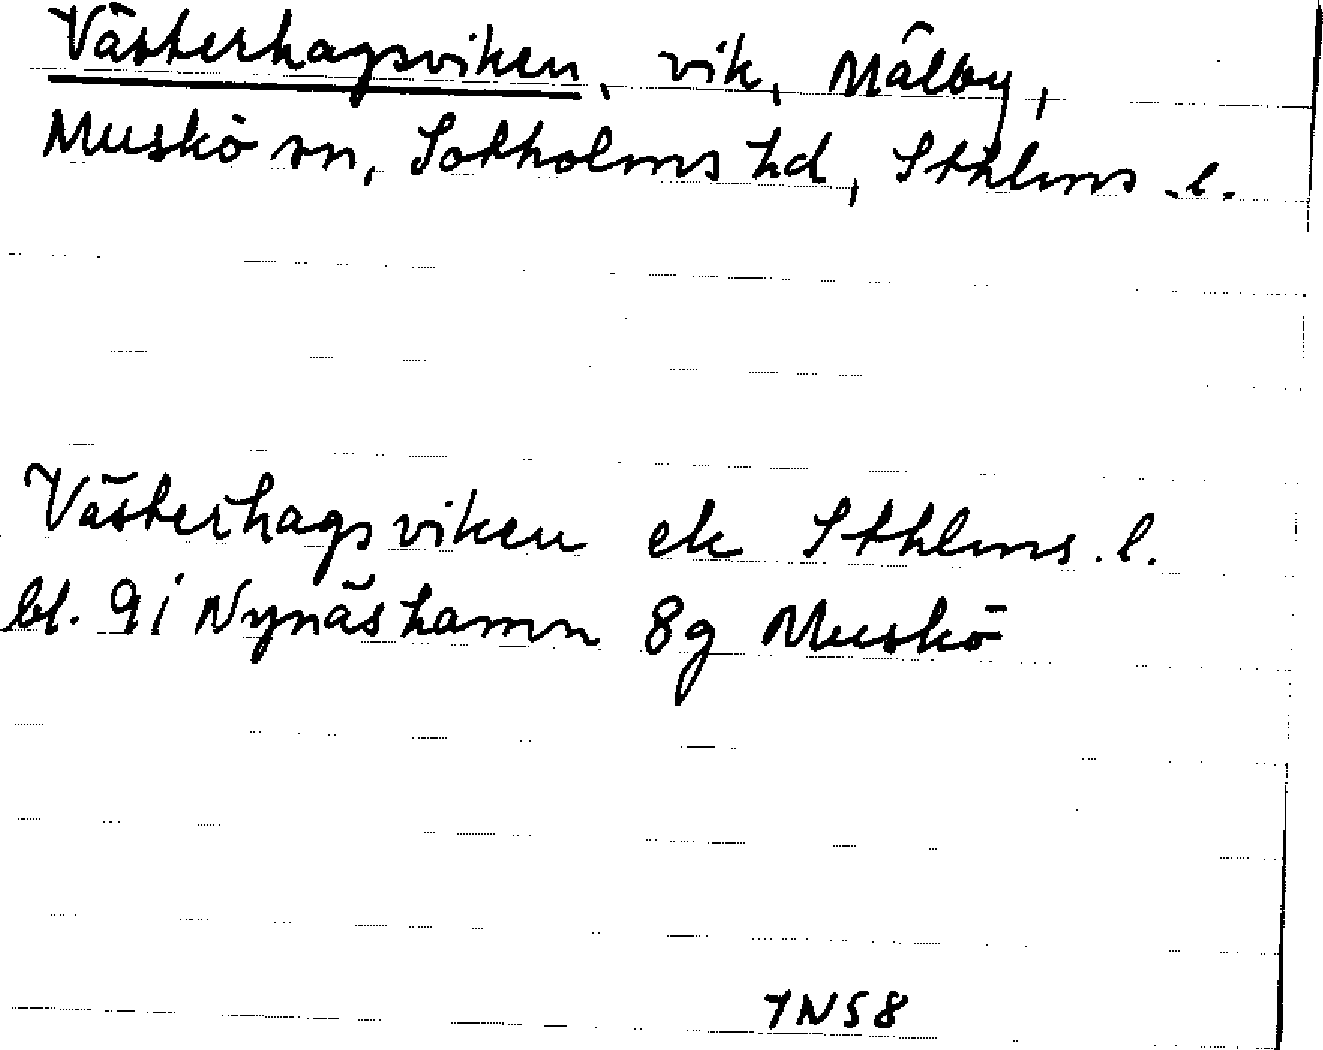 Västerhagsviken, vik, Mälby,
Muskö sn, Sotholms hd, Sthlms l.
Västerhagsviken ek Sthlms l.
bl. 9i Nynäshamn 8g Muskö
7N58